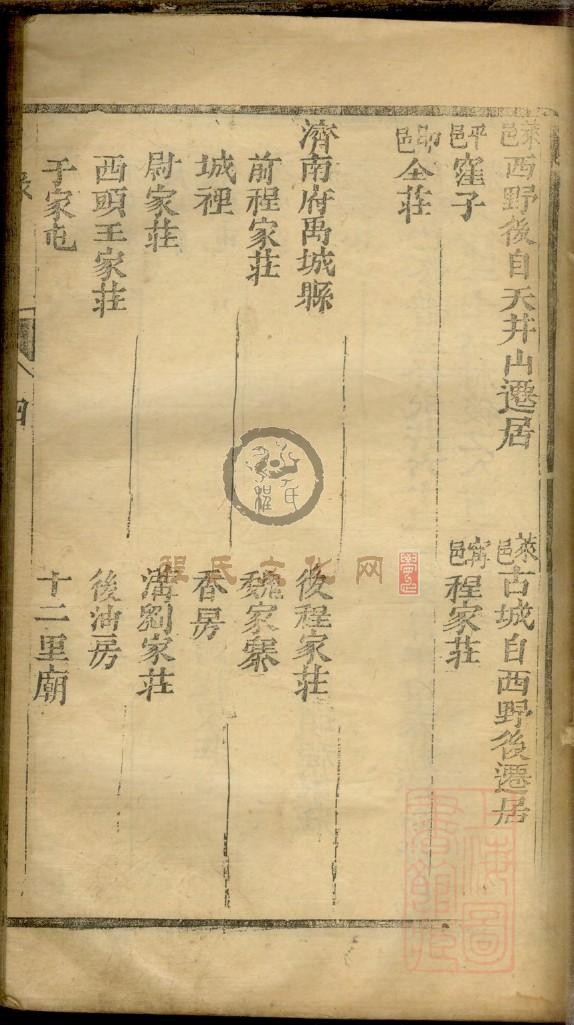 萊邑西野後自天井山遷居
萊邑古城自西野後遷居
平邑窪子
甯邑程家荘
即邑仝荘
濟南府禹城縣
後程家荘
前程家荘
魏家寨
城裡
香房
尉家荘
溝劉家荘
西頭王家荘
後油房
于家屯
十二里廟
四
程氏文化网